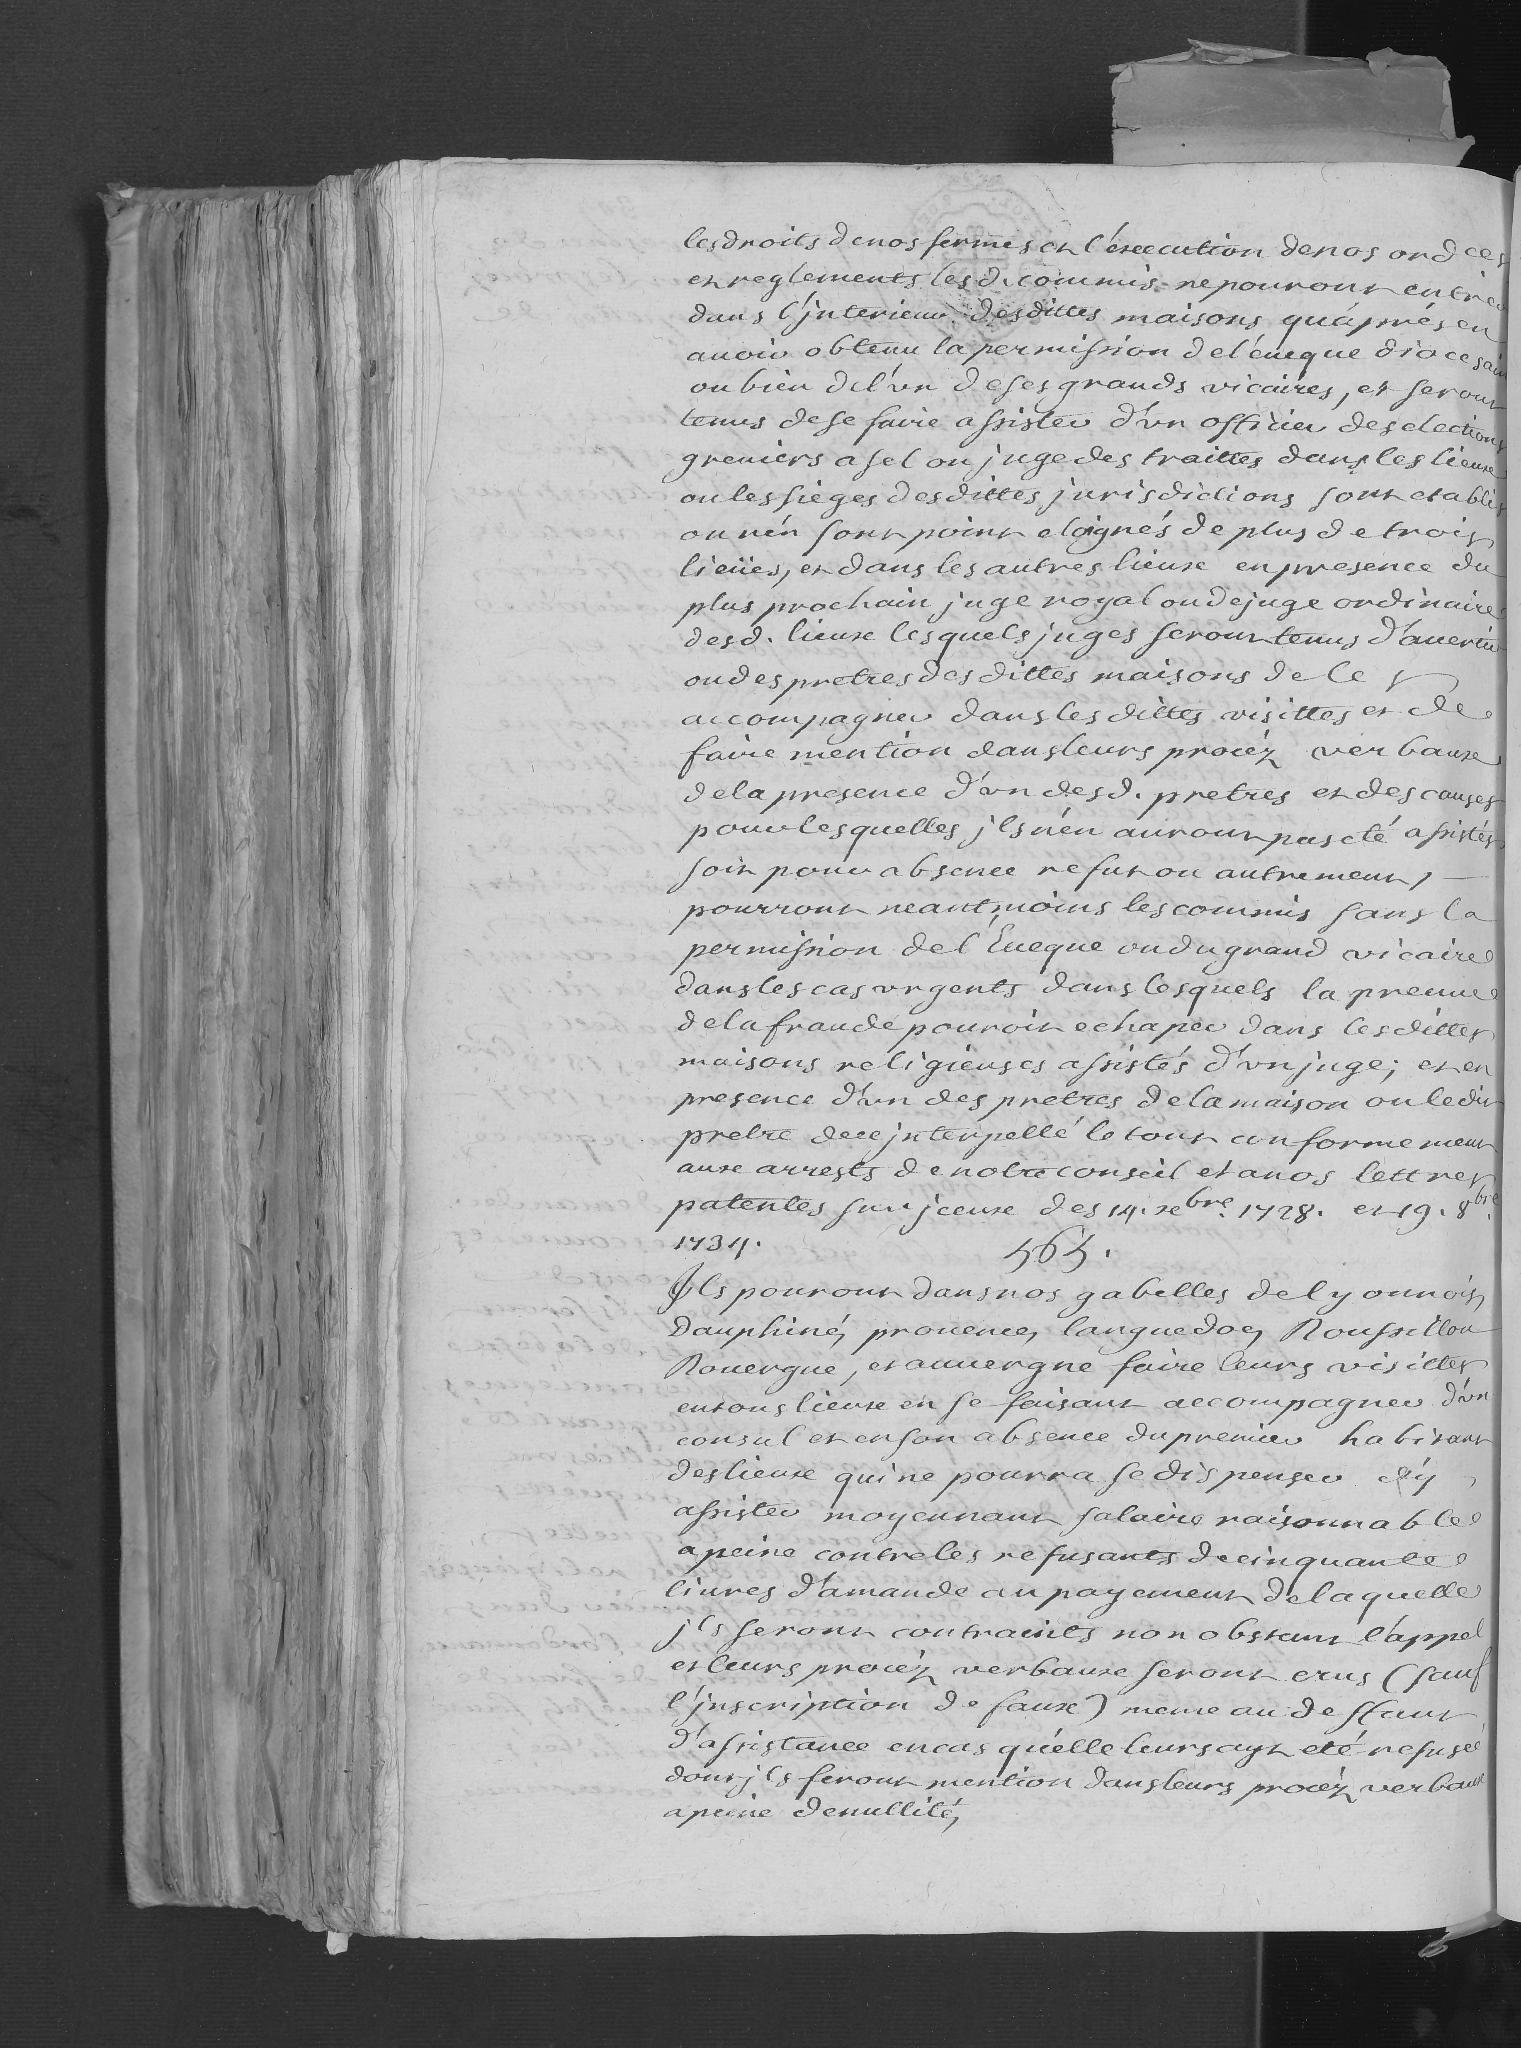 les droits de nos fermes et l'éxecution de nos ordces
et reglements les d. commis ne pouront entrer
dans l'jnterieur desdittes maisons qu'áprés en
auoir obtenu la permission de l'éueque diocesain
ou bien de l'vn de ses grands vicaires, et seront
tenus de se faire assister d'vn officier des elections
greniers a sel ou juge des traittes dans les lieux
ou les sieges desdittes jurisdictions sont etablis
ou n'én sont point eloignés de plus de trois
lieües, et dans les autres lieux en presence du
plus prochain juge royal ou de juge ordinaire
desd. lieux lesquels juges seront tenus d'auertir
ou des pretres desdittes maisons de les
accompagner dans lesdittes visittes et de
faire mention dans leurs procéz verbaux
de la presence d'vn desd. pretres et des causes
pour lesquelles jls n'én auront pas eté assistés
soit pour absence refus ou autrement,
pourront neantmoins les commis sans la
permission de l'Éueque ou du grand vicaire
dans les cas vrgents dans lesquels la preuue
de la fraude pouroit echaper dans lesdittes
maisons religieuses assistés d'vn juge; et en
presence d'vn des pretres de la maison ou ledit
pretre de ce jnterpellé le tout conformement
aux arrests de notre conseil et a nos lettres
patentes sur jceux des 14. xbre. 1728. et 19. 8bre.
1734.
565.
Jls pouront dans nos gabelles de lyonnois,
dauphiné, prouence, languedoc, Roussillon
Rouergue, et auuergne faire leurs visittes
en tous lieux en se faisant accompagner d'vn
consul et en son absence du premier habitant
des lieux qui ne pourra se dispenser d'y
assister moyennant salaire raisonnable
a peine contre les refusants de cinquante
liures d'amande au payement de laquelle
jls seront contraints non obstant l'appel
et leurs procéz verbaux seront crus (sauf
l'jnscription de faux) meme au deffaut
d'assistance en cas qu'élle leurs ayt eté refusé
dont jls feront mention dans leurs procéz verbaux
a peine de nullité,